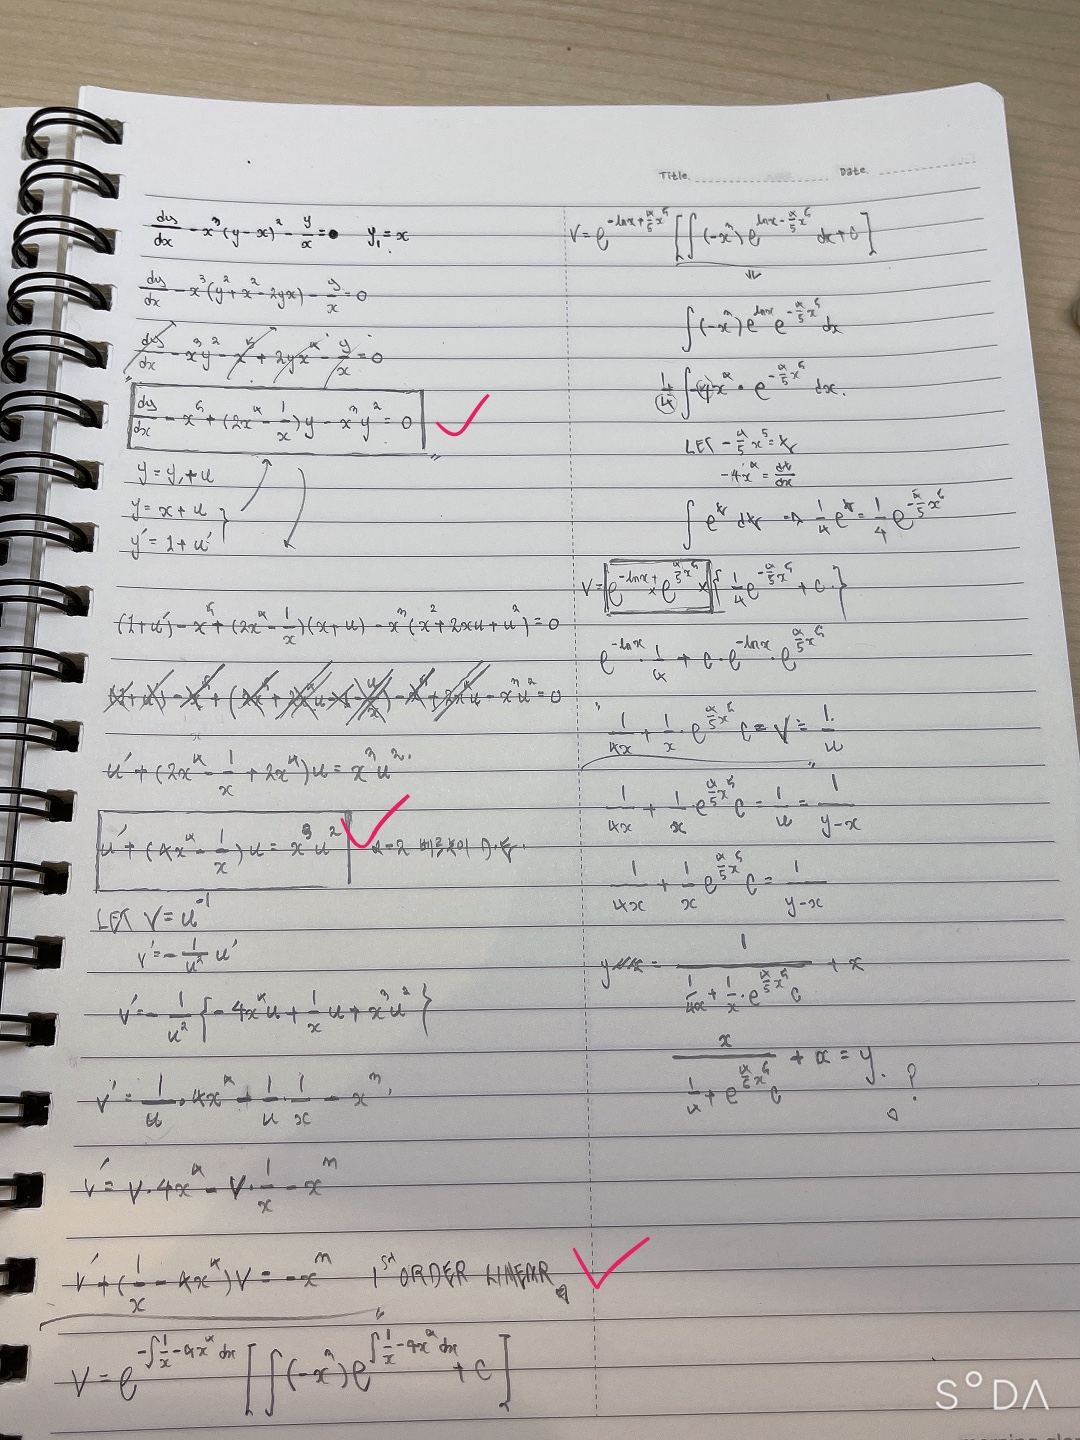 Title. Date.
dy/dx - x³(y-x)² - y/x = 0 y₁ = x
dy/dx - x³(y²+x²-2yx) - y/x = 0
dy/dx - x³y² - x⁵ + 2yx⁴ - y/x = 0
dy/dx - x⁵ + (2x⁴ - 1/x)y - x³y² = 0
y = y₁ + u
y = x + u
y' = 1 + u'
(1+u') - x⁵ + (2x⁴ - 1/x)(x+u) - x³(x²+2xu+u²) = 0
u' + (2x⁴ - 1/x + 2x⁴)u = x³u².
u' + (4x⁴ - 1/x)u = x³u²
LET V = u⁻¹
v' = - 1/u² u'
v' = - 1/u² { - 4x⁴u + 1/x u + x³u² }
v' = 1/u · 4x⁴ - 1/u · 1/x - x³
v' = V·4x⁴ - V·1/x - x³
v' + (1/x - 4x⁴)V = -x³ 1st ORDER LINEAR
V = e^(-∫1/x - 4x⁴dx) [∫(-x³)e^(∫1/x - 4x⁴dx) + C]
V = e^(-lnx + 4/5x⁵) [∫(-x³)e^(lnx - 4/5x⁵) dx + C]
∫(-x³)e^(lnx) e^(-4/5x⁵) dx
1/4 ∫-(4)x⁴ · e^(-4/5x⁵) dx.
LET -4/5x⁵ = t
-4x⁴ = dt/dx
∫ e^t dt ⇒ 1/4 e^t = 1/4 e^(-4/5x⁵)
V = e^(-lnx) × e^(4/5x⁵) × { 1/4 e^(-4/5x⁵) + C }
e^(-lnx) · 1/4 + C · e^(-lnx) · e^(4/5x⁵)
1/4x + 1/x · e^(4/5x⁵) C = V = 1/u
1/4x + 1/x · e^(4/5x⁵) C = 1/u = 1/(y-x)
1/4x + 1/x e^(4/5x⁵) C = 1/(y-x)
y = 1/(1/4x + 1/x · e^(4/5x⁵) C) + x
x/(1/4 + e^(4/5x⁵) C) + x = y. ?
SODA